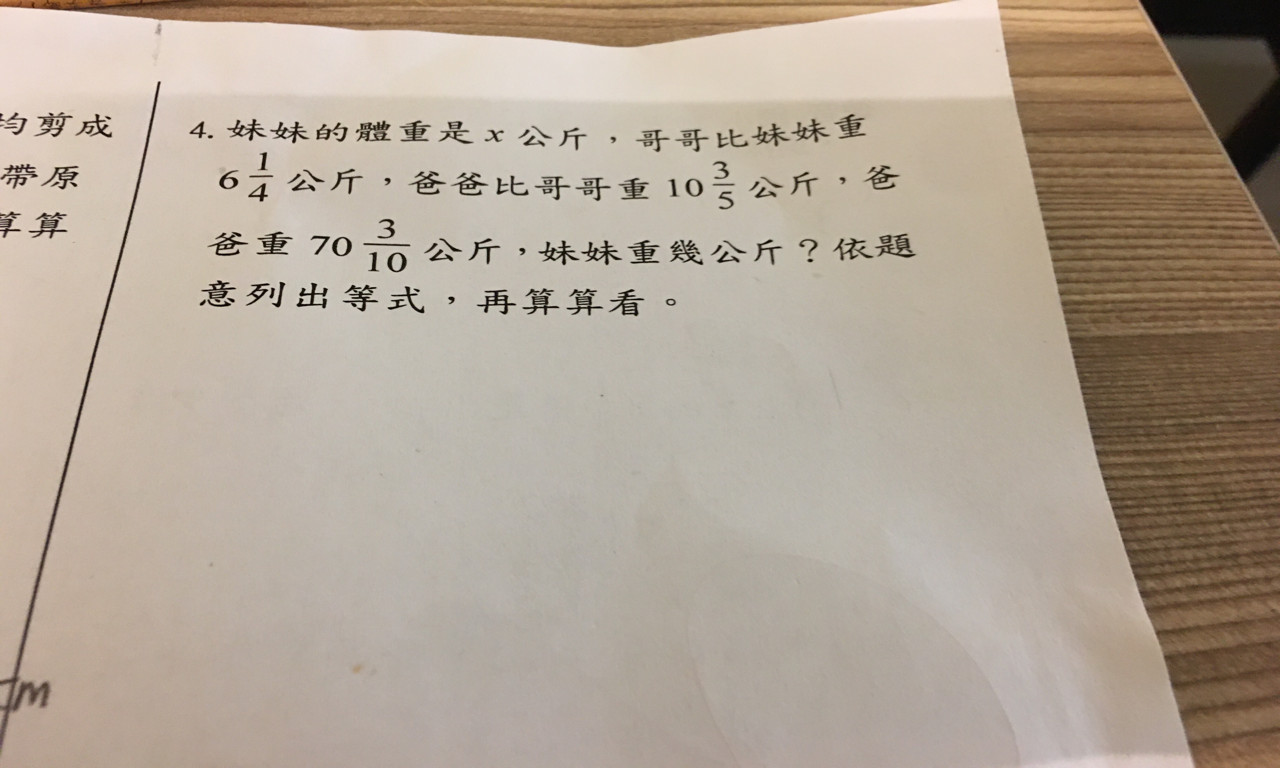 均剪成
帶原
算算
4. 妹妹的體重是 x 公斤，哥哥比妹妹重
6 1/4 公斤，爸爸比哥哥重 10 3/5 公斤，爸
爸重 70 3/10 公斤，妹妹重幾公斤？依題
意列出等式，再算算看。
m